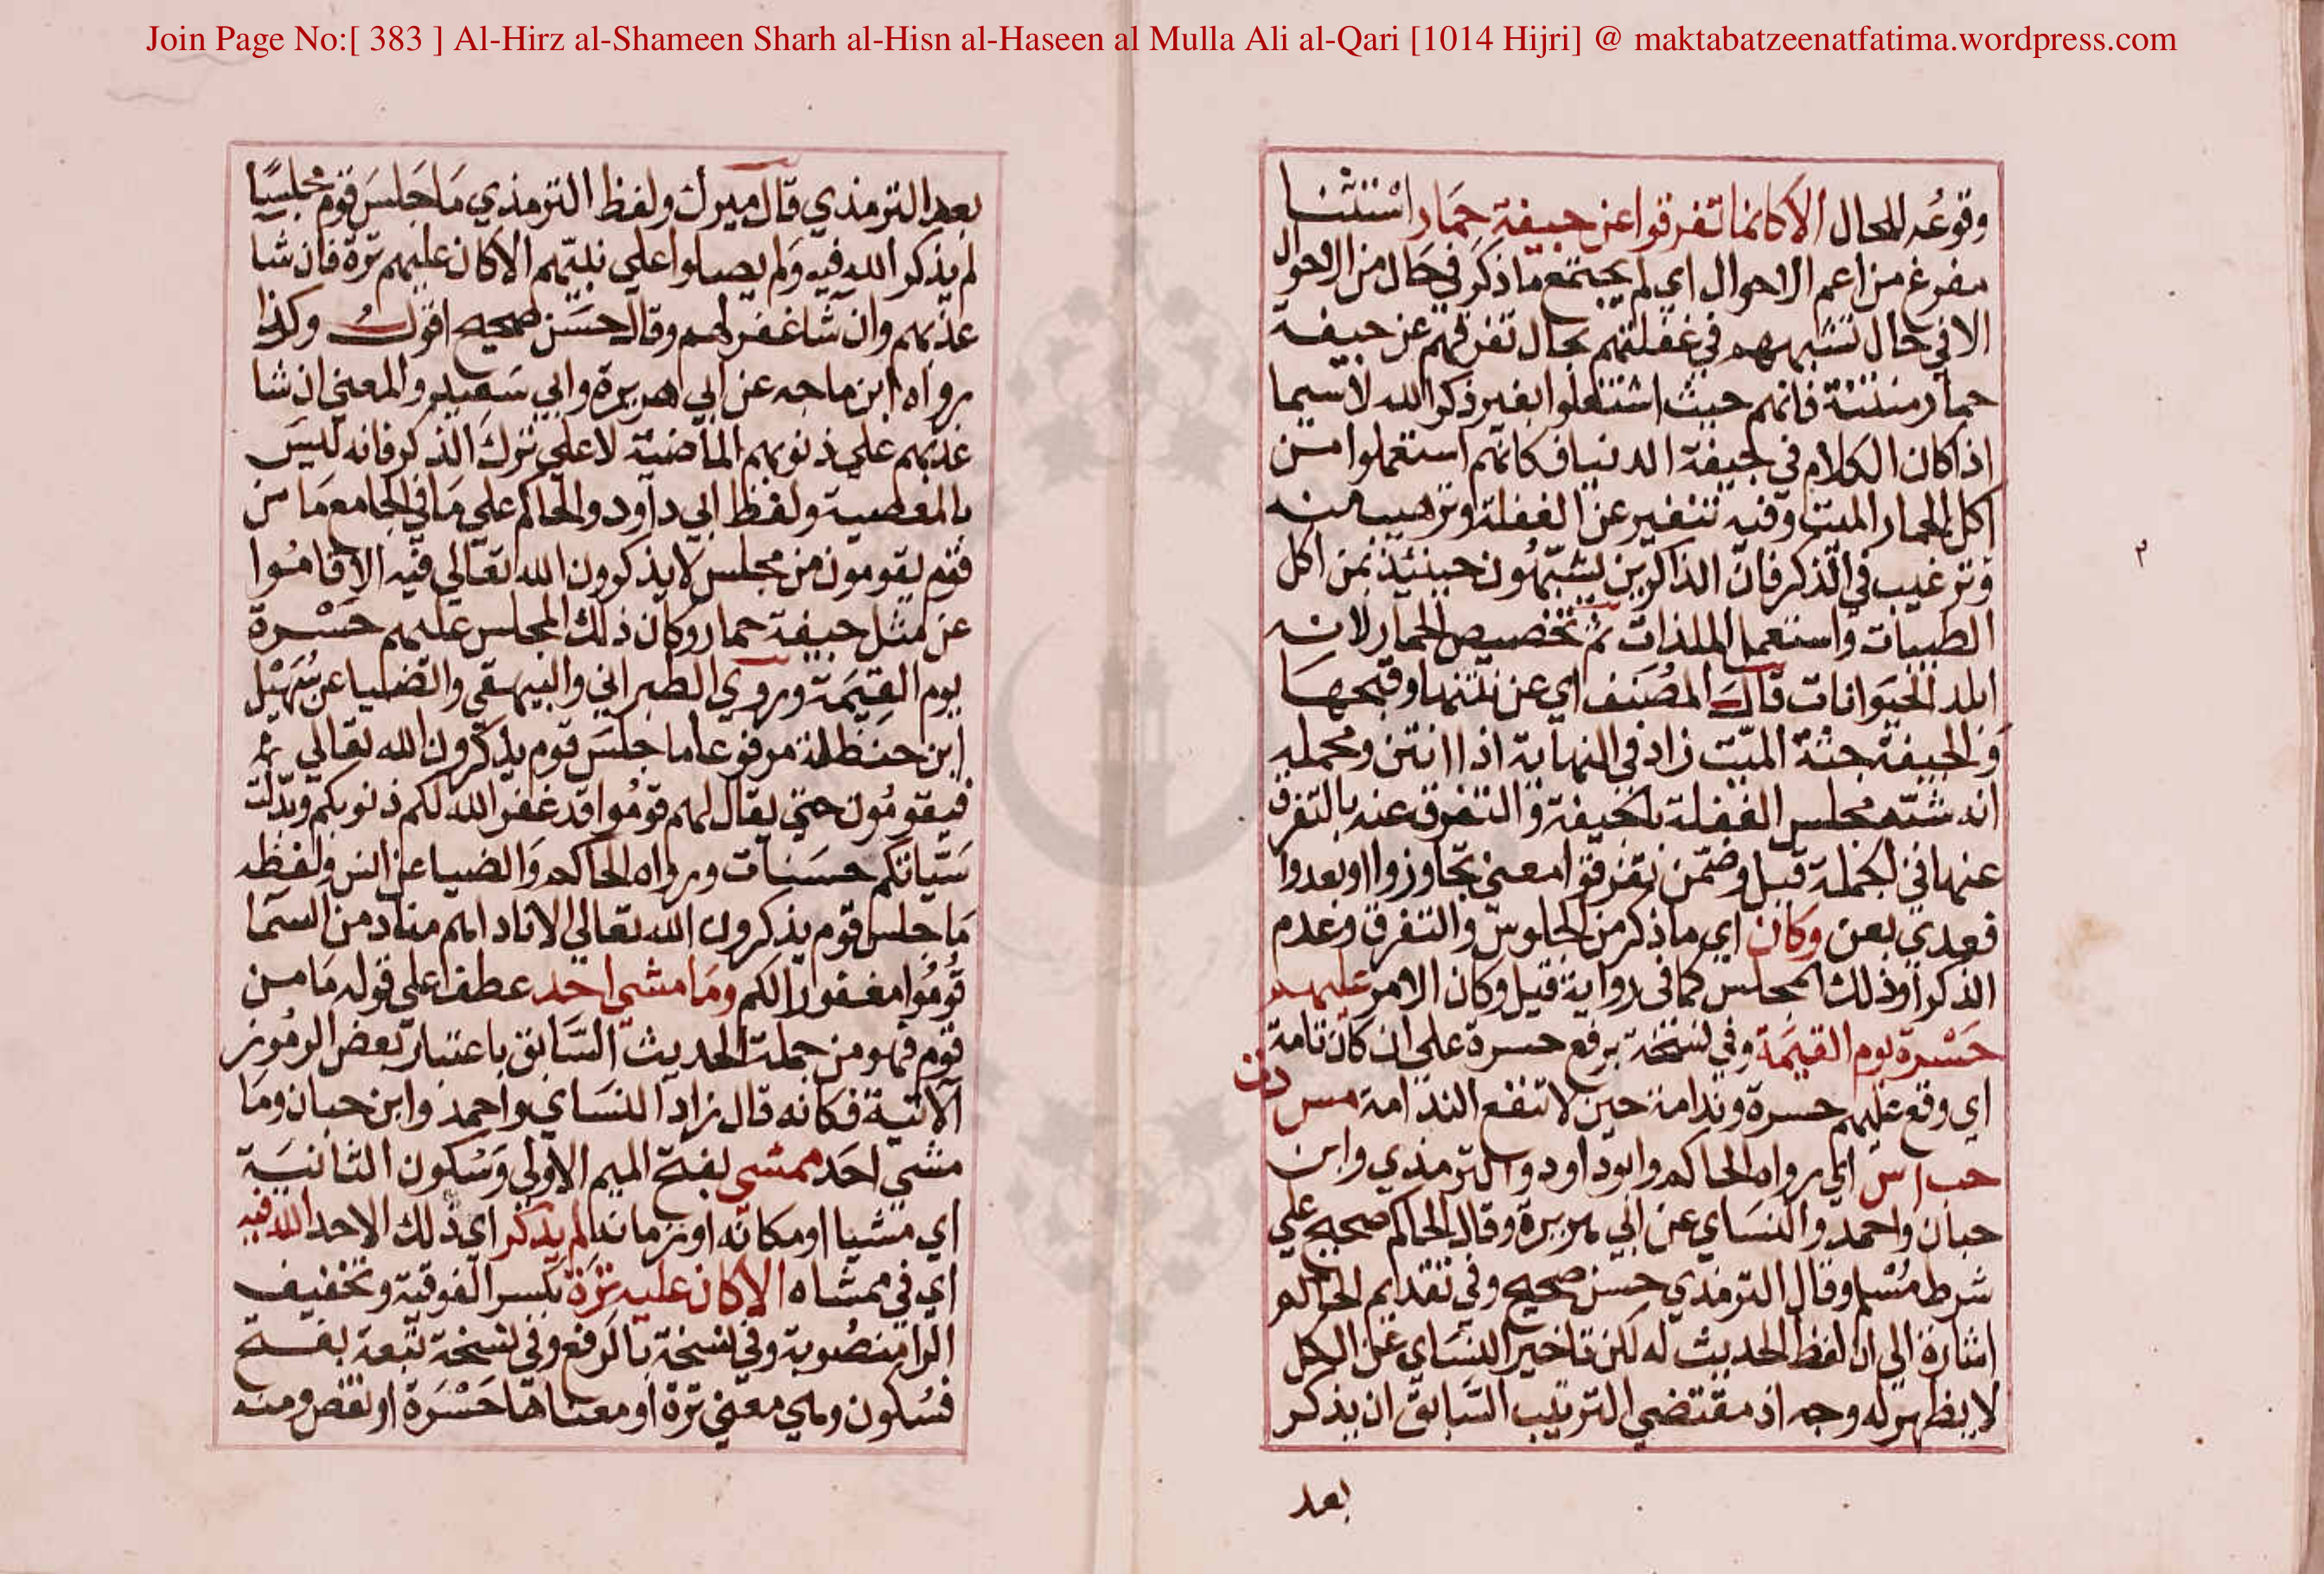 Join Page No:[ 383 ] Al-Hirz al-Shameen Sharh al-Hisn al-Haseen al Mulla Ali al-Qari [1014 Hijri] @ maktabatzeenatfatima.wordpress.com
وقوعُه للمحال الا كانما تفرقوا عن جيفة حمَار استثنا
مفرغ من اعم الاحوال اي لم يجتمع ما ذكر في حَال من الاحوال
الا في حال تشبيههم في غفلتهم بحال تفرقهم عن جيفة
حمار منتنة فانهم حيث اشتغلوا بغير ذكر الله لا سيما
اذا كان الكلام في جيفة الدنيا فكانهم استعملوا من
اكل الحمار الميت وفيه تنفير عن الغفلة وترهيب منه
وترغيب في الذكر فانّ الذاكرين يشبّهُون حينئذ بمن اكل
الطيبات واستعمل الملذات ثم تخصيص الحمار لانه
ابلد الحيَوانات قال المصَنف اي عن نتنها وقبحها
وَالجيفة جثة الميّت زاد في النهاية اذا انتن ومحمله
انه شبّه مجلس الغفلة بالجيفة والتفرق عنه بالتفرق
عنها في الجملة قيل وضمّن تفرقوا معنى تجاوزوا او بعدوا
فعدي بعن وكان اي ما ذكر من الجلوس والتفرق وعدم
الذكر او ذلك المجلس كما في رواية قيل وكان الامر عليهم
حَسْرة يوم القيمَة وفي نسخة برفع حسرة على ان كان تامة
اي وقع عليهم حسرة وندامة حين لا تنفع الندامة مس دت
حب اس اي رواه الحاكم وابو داود والترمذي وابن
حبان واحمد والنسَاي عن ابي هريرة وقال الحاكم صحيح علي
شرط مُسْلم وقال الترمذي حسن صحيح وفي تقديم الحاكم
اشارة الى ان لفظ الحديث له لكن تاخير النسَاي عن الكل
لا يظهر له وجه اذ مقتضي الترتيب السَّابق ان يذكر
بعد
بعد الترمذي قال ميرك ولفظ الترمذي مَا جَلسَ قوم مجلسًا
لم يذكر الله فيه وَلم يصلوا علي نبيّهم الا كان عليهم ترة فان شا
عذبهم وان شا غفر لهم وقال حسَن صحيح اقول وكذا
رواه ابن ماجه عن ابي هريرة وابي سَعيد والمعني ان شا
عذبهم علي ذنوبهم الماضية لا علي ترك الذكر فانه ليسَ
بالمعصية ولفظ ابي داود والحاكم علي مَا في الجامع مَا من
قوم يقومون من مجلس لا يذكرون الله تعَالي فيه الا قامُوا
عن مثل جيفة حمار وكان ذلك المجلس عليهم حَسْرة
يوم القيمَة وروي الطبراني والبيهقي والضيا عن سُهَيْل
ابن حنظلة مرفوعا ما جلسَ قوم يذكرون الله تعالي ثم
فيقومُون حتي يقال لهم قومُوا قد غفر الله لكم ذنوبكم وبدّلت
سَيّاتكم حسَنات ورواه الحاكم وَالضيا عن انس ولفظه
مَا جلس قوم يذكرون الله تعالي الا ناداهم مناد من السمَا
قُومُوا مغفورا لكم ومَا مشى احد عطف علي قوله مَا من
قوم فهو من جملة الحديث السَّابق باعتبار بعض الرمُوز
الاتية فكانه قال زاد النسَاي واحمد وابن حبان ومَا
مشي احَد ممشى بفتح الميم الاولي وَسُكون الثانيَة
اي مشيا او مكانه او زمانه لم يذكر اي ذلك الاحد الله فيه
اي في ممشاه الا كان عليه ترَة بكسر الفوقية وتخفيف
الرا منصُوبة وفي نسخة بالرفع وفي نسخة تبعة بفتح
فسُكون وهي معني ترة او معناها حَسْرَة او نقص ومنه